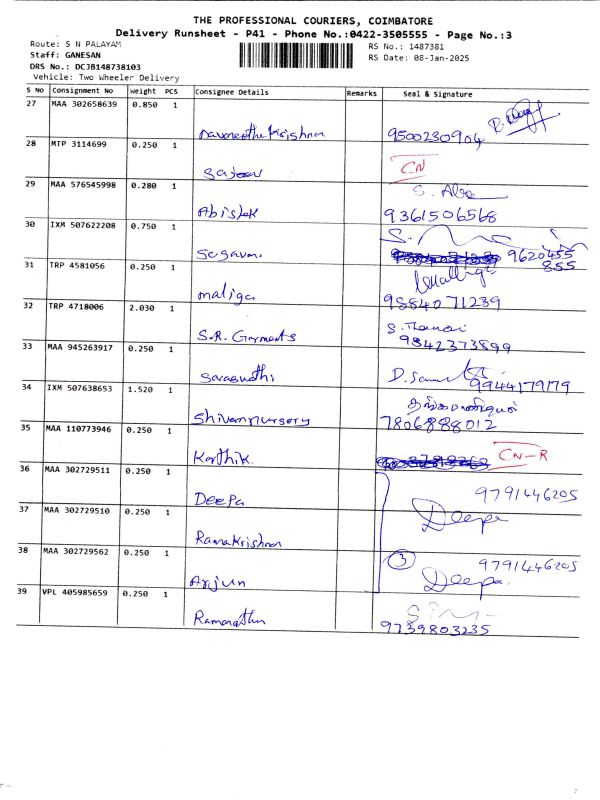 THE PROFESSIONAL COURIERS, COIMBATORE
Delivery Runsheet - P41 - Phone No.:0422-3505555 - Page No.:3
Route: S N PALAYAM
RS No.: 1487381
Staff: GANESAN
RS Date: 08-Jan-2025
DRS No.: DCJB148738103
Vehicle: Two Wheeler Delivery
S No Consignment No Weight PCS Consignee Details Remarks Seal & Signature
27 MAA 302658639 0.850 1
Navaneetha Krishnan 9500230904
28 MTP 3114699 0.250 1
Sajeev CN
29 MAA 576545998 0.280 1 S. Abe
Abishek 9361506568
30 IXM 507622208 0.750 1
9620455
855
31 TRP 4581056 0.250 1
maliga 9884071239
32 TRP 4718006 2.030 1
S.R. Garments 9842373899
33 MAA 945263917 0.250 1
Saraswathi 9944179179
34 IXM 507638653 1.520 1
Shivam nursery 7806888012
35 MAA 110773946 0.250 1
Karthik. CN-R
36 MAA 302729511 0.250 1
Deepa 9791446205
37 MAA 302729510 0.250 1 Deepa
Ramakrishnan
38 MAA 302729562 0.250 1 3 9791446205
Arjun Deepa.
39 VPL 405985659 0.250 1
9739803235